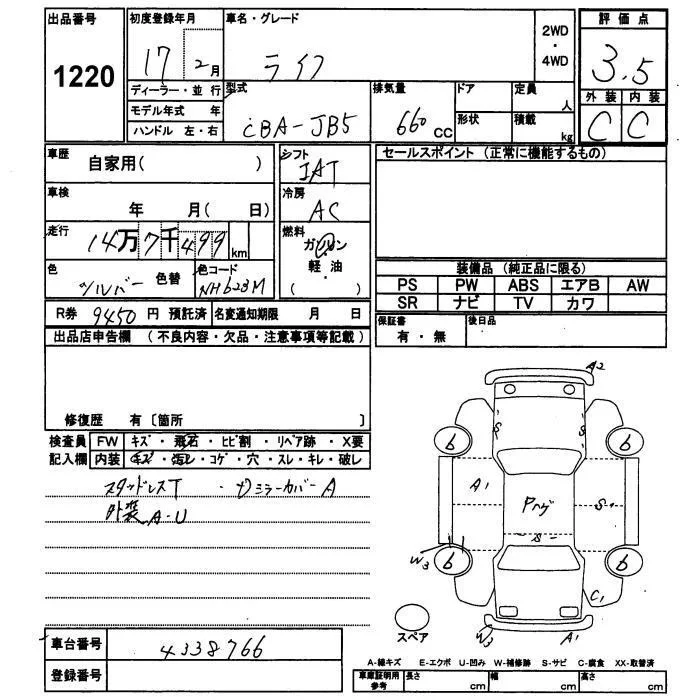 出品番号
1220
初度登録年月
17 2月
車名・グレード
ライフ
2WD
・
4WD
評価点
3.5
外装 内装
C C
ディーラー・並行
モデル年式 年
ハンドル 左・右
型式
CBA-JB5
排気量
660 CC
ドア
形状
定員
人
積載
kg
車歴
自家用( )
車検
年 月( 日)
走行
14万7千499 km
色
シルバー 色替
色コード
NH623M
シフト
IAT
冷房
AC
燃料
ガソリン
・
軽油
( )
セールスポイント (正常に機能するもの)
装備品 (純正品に限る)
PS PW ABS エアB AW
SR ナビ TV カワ
R券 9450 円 預託済
名変通知期限 月 日
保証書
有・無
後日品
出品店申告欄 (不良内容・欠品・注意事項等記載)
修復歴 有〔箇所 〕
検査員 FW キズ・飛石・ヒビ割・リペア跡・X要
記入欄 内装 キズ・汚レ・コゲ・穴・スレ・キレ・破レ
スタッドレスT ・ミラーカバーA
外装A-U
A2
S S
6 6
A1
Pヘゲ
S
S
W3
6 6
C1
スペア
W3
A1
車台番号
4338766
登録番号
A-線キズ E-エクボ U-凹み W-補修跡 S-サビ C-腐食 XX-取替済
車庫証明用
参考
長さ cm
幅 cm
高さ cm